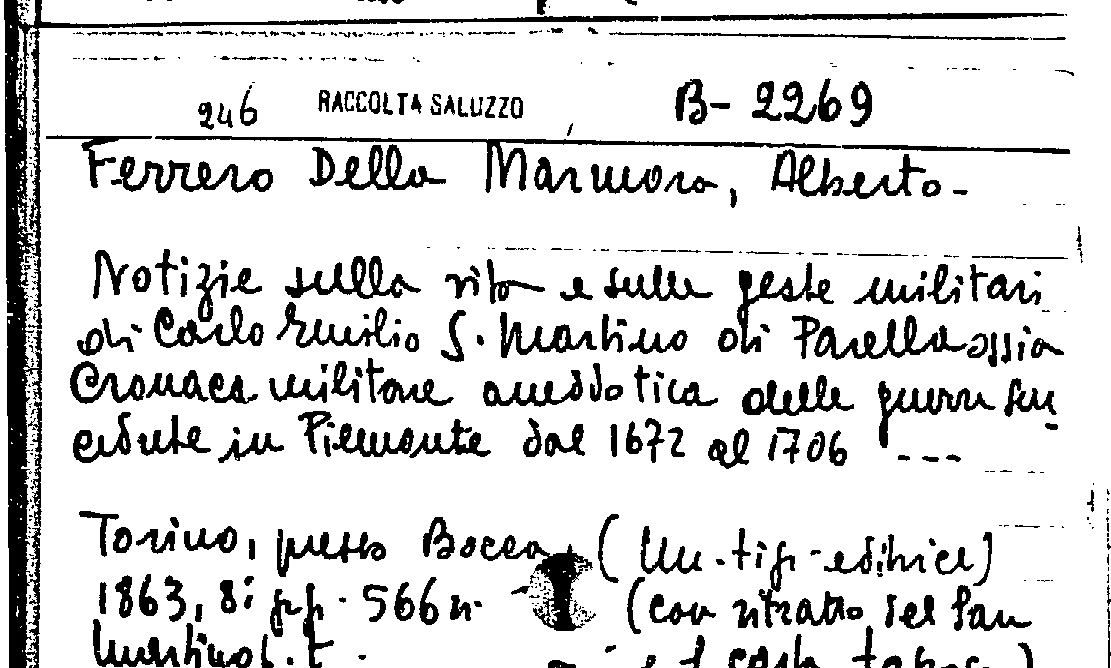 246 RACCOLTA SALUZZO B-2269
Ferrero Della Marmora, Alberto-
Notizie sulla vita e sulle geste militari
di Carlo Emilio S. Martino di Parella ossia
Cronaca militare aneddotica delle guerre suc
cedute in Piemonte dal 1672 al 1706 ---
Torino, presso Bocca, (Un. tip-editrice)
1863, 8: pp. 566 (con ritratto del San
Martino